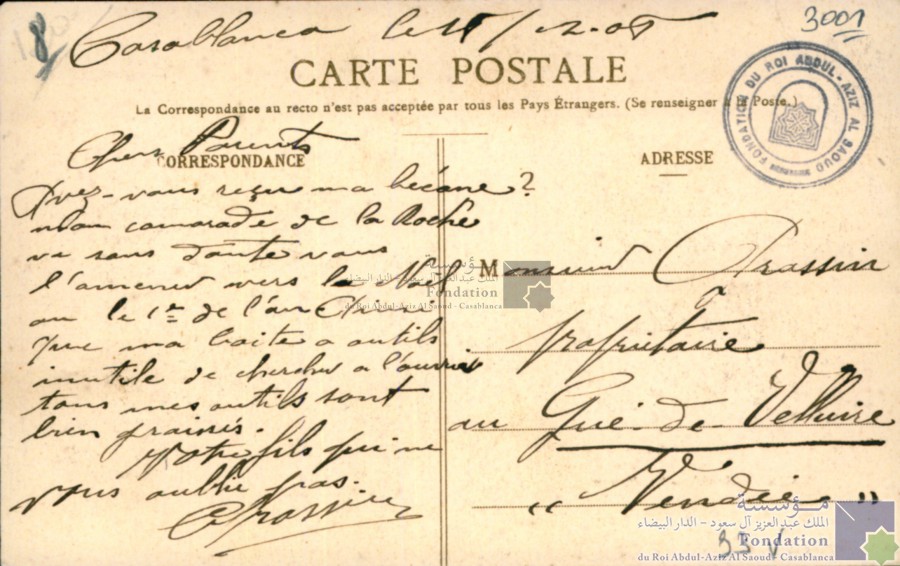 8
Casablanca le 15/12-08
3001
CARTE POSTALE
La Correspondance au recto n'est pas acceptée par tous les Pays Étrangers. (Se renseigner à la Poste.)
FONDATION DU ROI ABDUL-AZIZ AL SAOUD
CORRESPONDANCE
Chers Parents
Avez-vous reçu ma bécane?
mon camarade de la Roche
va sans doute vous
l'amener vers la Noël
ou le 1er de l'an
que ma boite a outils
inutile de chercher a l'ouvrir
tous mes outils sont
bien graissés.
Votre fils qui ne
vous oublie pas.
ADRESSE
Monsieur
propriétaire
au Gué-de-Velluire
" Vendée "
33 V
مؤسسة
الملك عبد العزيز آل سعود - الدار البيضاء
Fondation
du Roi Abdul-Aziz Al Saoud - Casablanca
مؤسسة
الملك عبد العزيز آل سعود - الدار البيضاء
Fondation
du Roi Abdul-Aziz Al Saoud - Casablanca